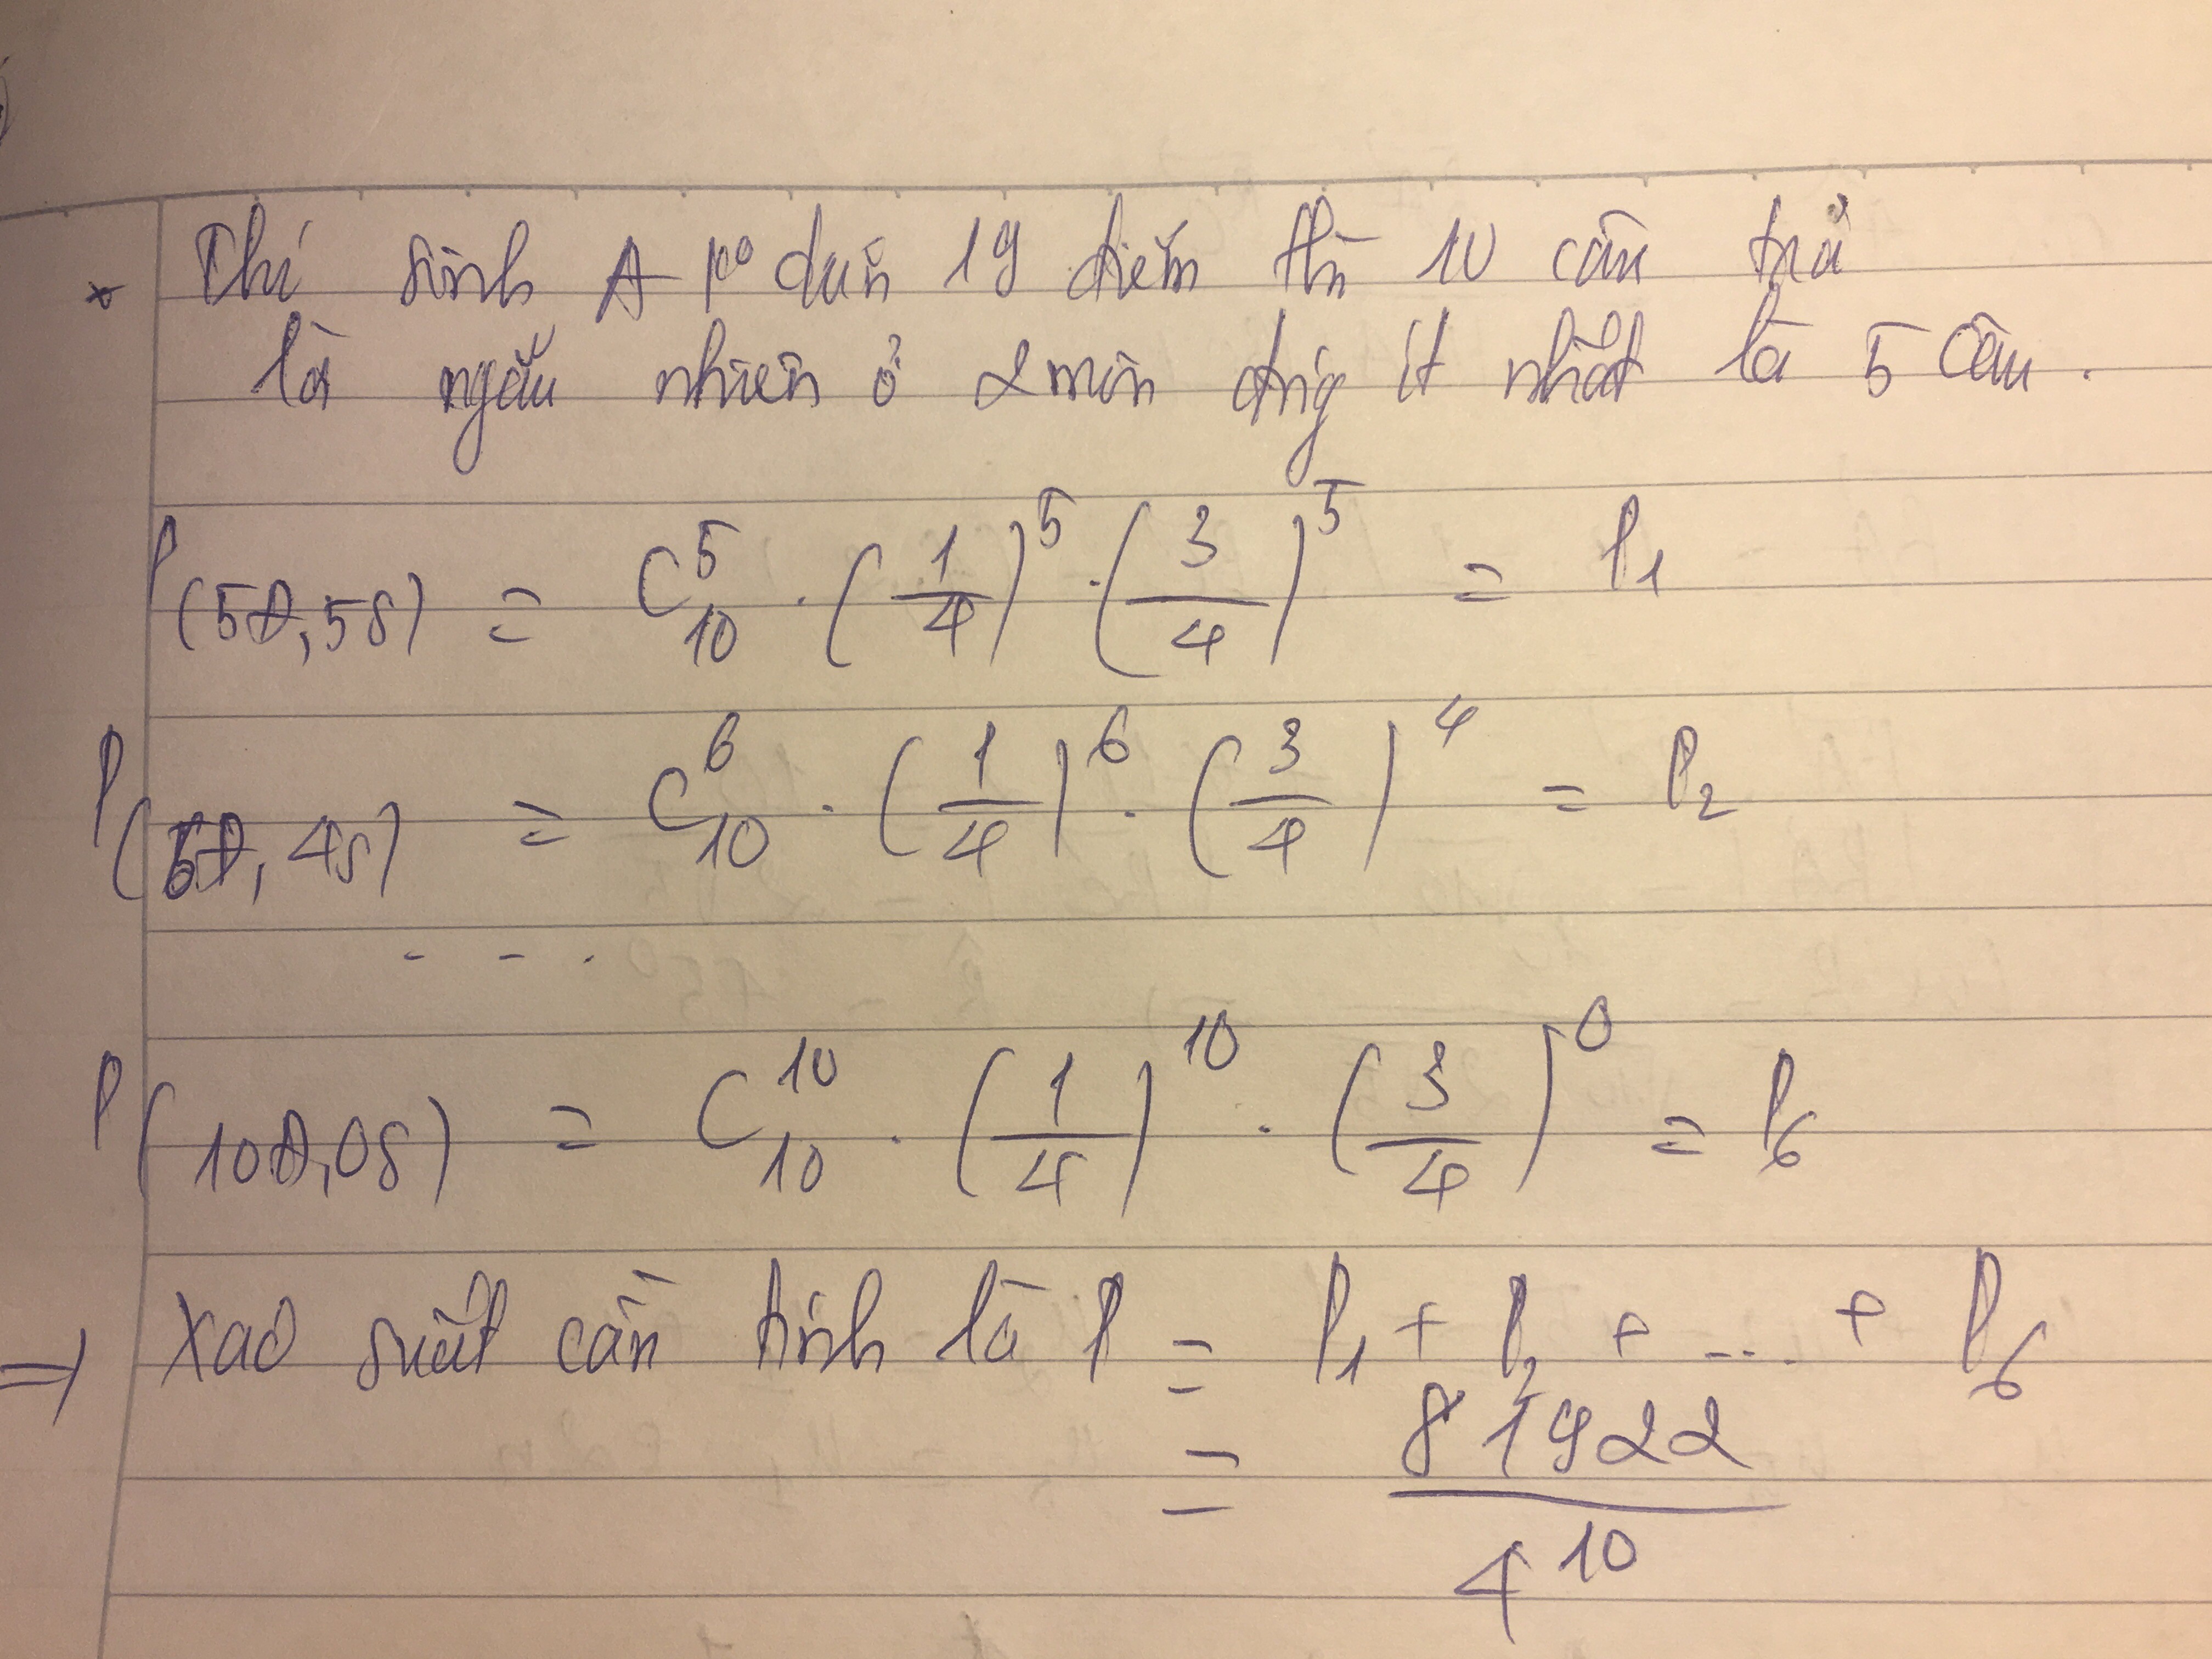 * Thí sinh A k° dưới 19 điểm thì 10 câu trả
lời ngẫu nhiên ở 2 môn đúng ít nhất là 5 câu.
P(5Đ,5S) = C₁₀⁵ . (1/4)⁵ . (3/4)⁵ = P₁
P(6Đ,4S) = C₁₀⁶ . (1/4)⁶ . (3/4)⁴ = P₂
- - .
P(10Đ,0S) = C₁₀¹⁰ . (1/4)¹⁰ . (3/4)⁰ = P₆
=> Xác suất cần tính là P = P₁ + P₂ + ... + P₆
= 81922/4¹⁰